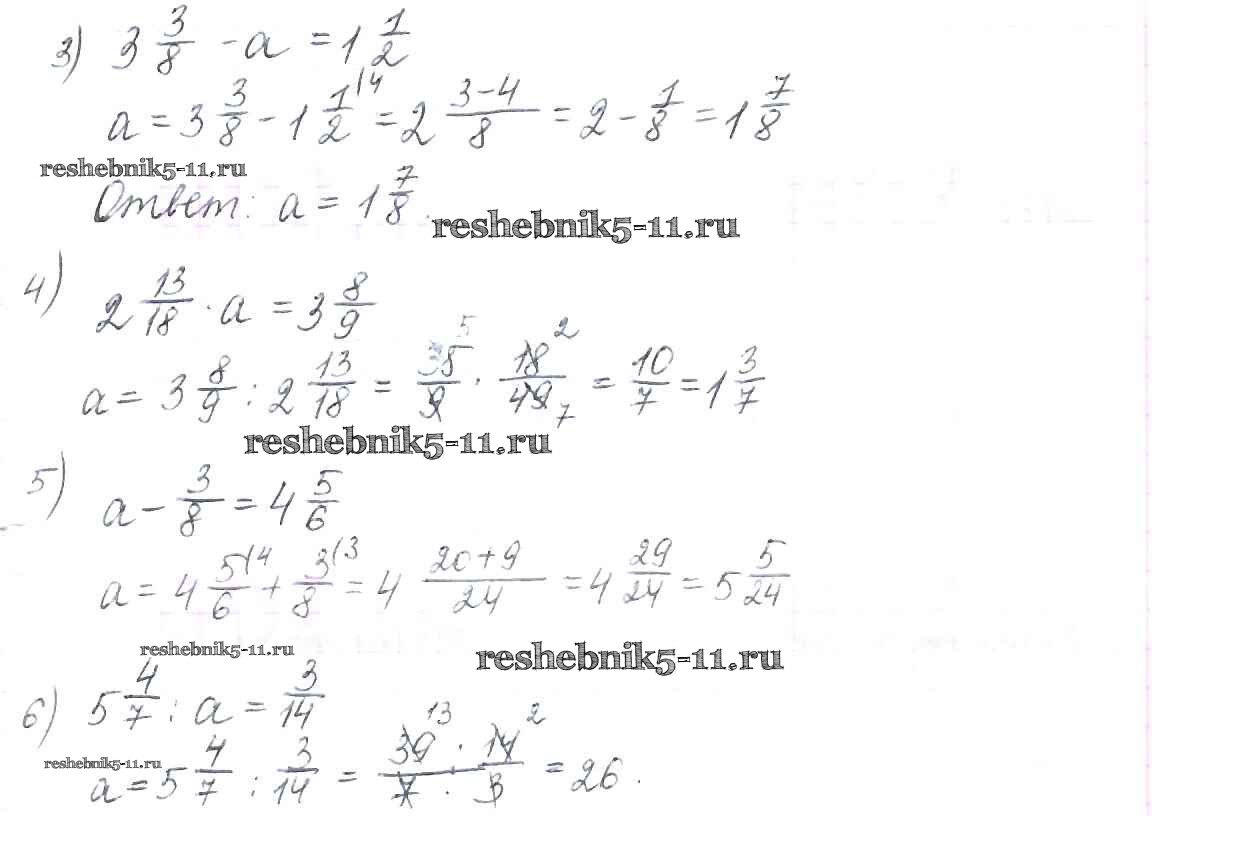 3) 3 3/8 - a = 1 1/2
a = 3 3/8 - 1 1/2 (4 = 2 (3-4)/8 = 2 - 1/8 = 1 7/8
reshebnik5-11.ru
Ответ: a = 1 7/8.
reshebnik5-11.ru
4) 2 13/18 · a = 3 8/9
a = 3 8/9 : 2 13/18 = 35/9 5 · 18/49 2 7 = 10/7 = 1 3/7
reshebnik5-11.ru
5) a - 3/8 = 4 5/6
a = 4 5/6 (4 + 3/8 (3 = 4 (20+9)/24 = 4 29/24 = 5 5/24
reshebnik5-11.ru
reshebnik5-11.ru
6) 5 4/7 : a = 3/14
reshebnik5-11.ru
a = 5 4/7 : 3/14 = (39 13 · 14 2)/(7 · 3) = 26.